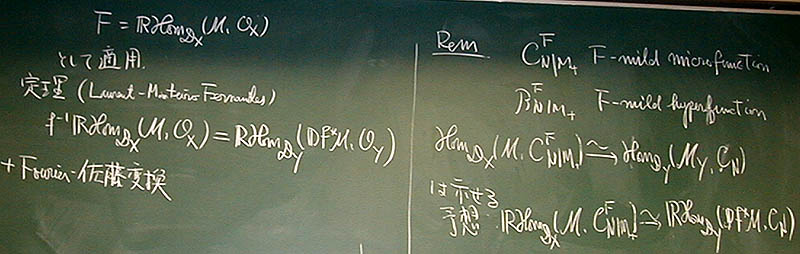 F = RHom_{D_X}(M, O_X)
として適用.
定理 (Laurent-Monteiro Fernandes)
f^{-1}RHom_{D_X}(M, O_X) = RHom_{D_Y}(Df*M, O_Y)
+ Fourier-佐藤変換
Rem. C^F_{N|M+} F-mild microfunction
B^F_{N|M+} F-mild hyperfunction
Hom_{D_X}(M, C^F_{N|M+}) ≃→ Hom_{D_Y}(M_Y, C_N)
は示せる
予想. RHom_{D_X}(M, C^F_{N|M+}) ≃→ RHom_{D_Y}(Df*M, C_N)